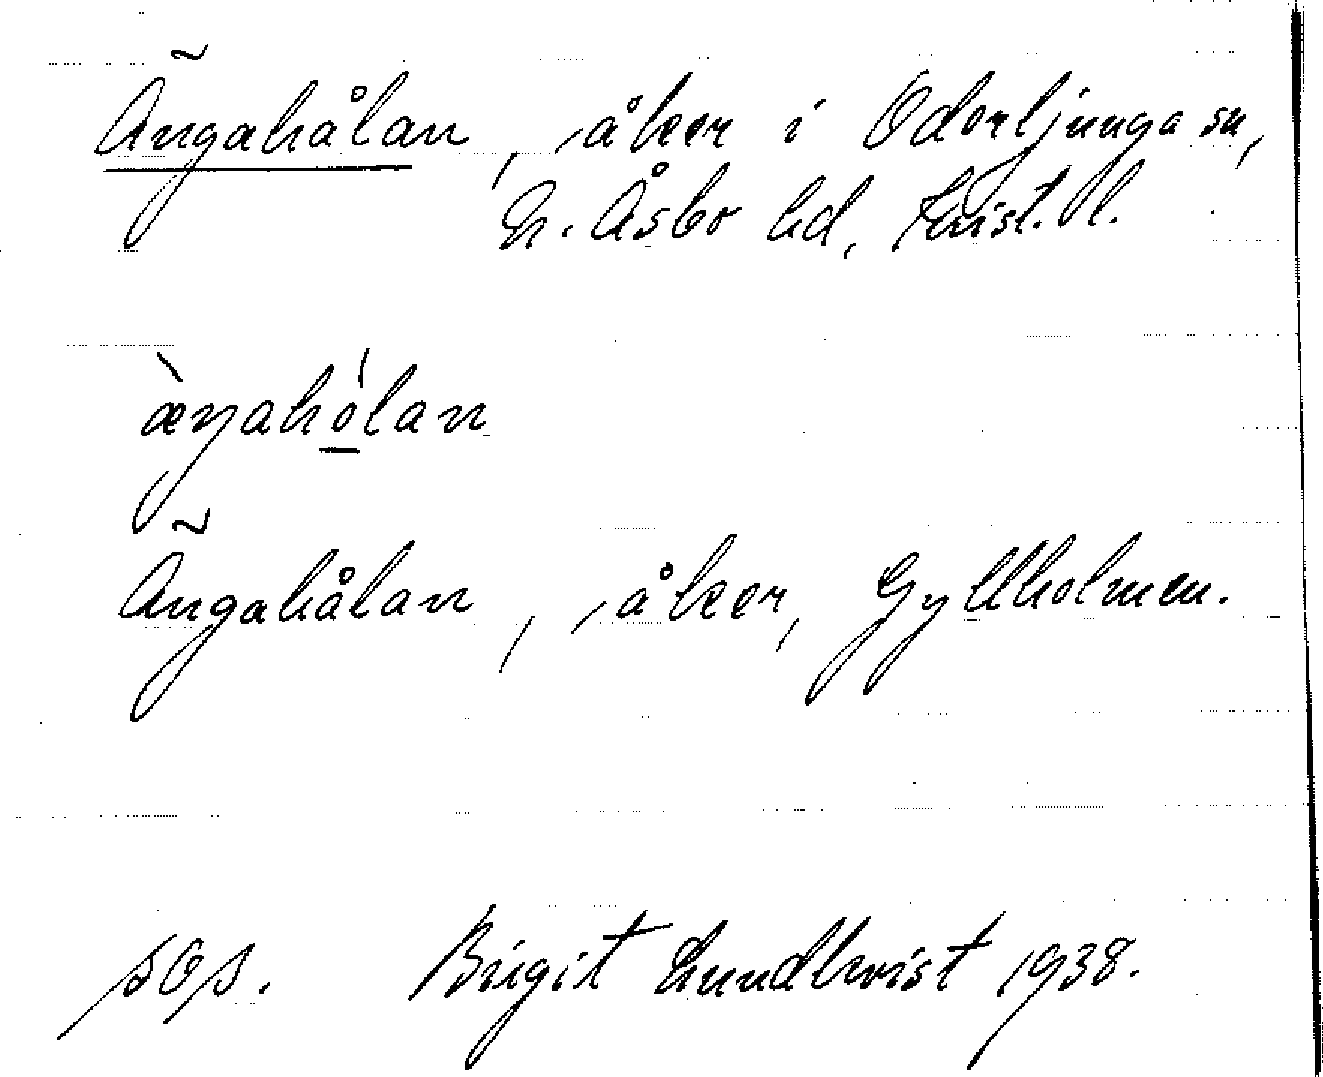 Ängahålan, åker i Oderljunga sn,
N. Åsbo hd, Krist. l.
æ̀ŋahó̱lan
Ängahålan, åker, Gyllholmen.
sOs. Birgit Lundkvist 1938.